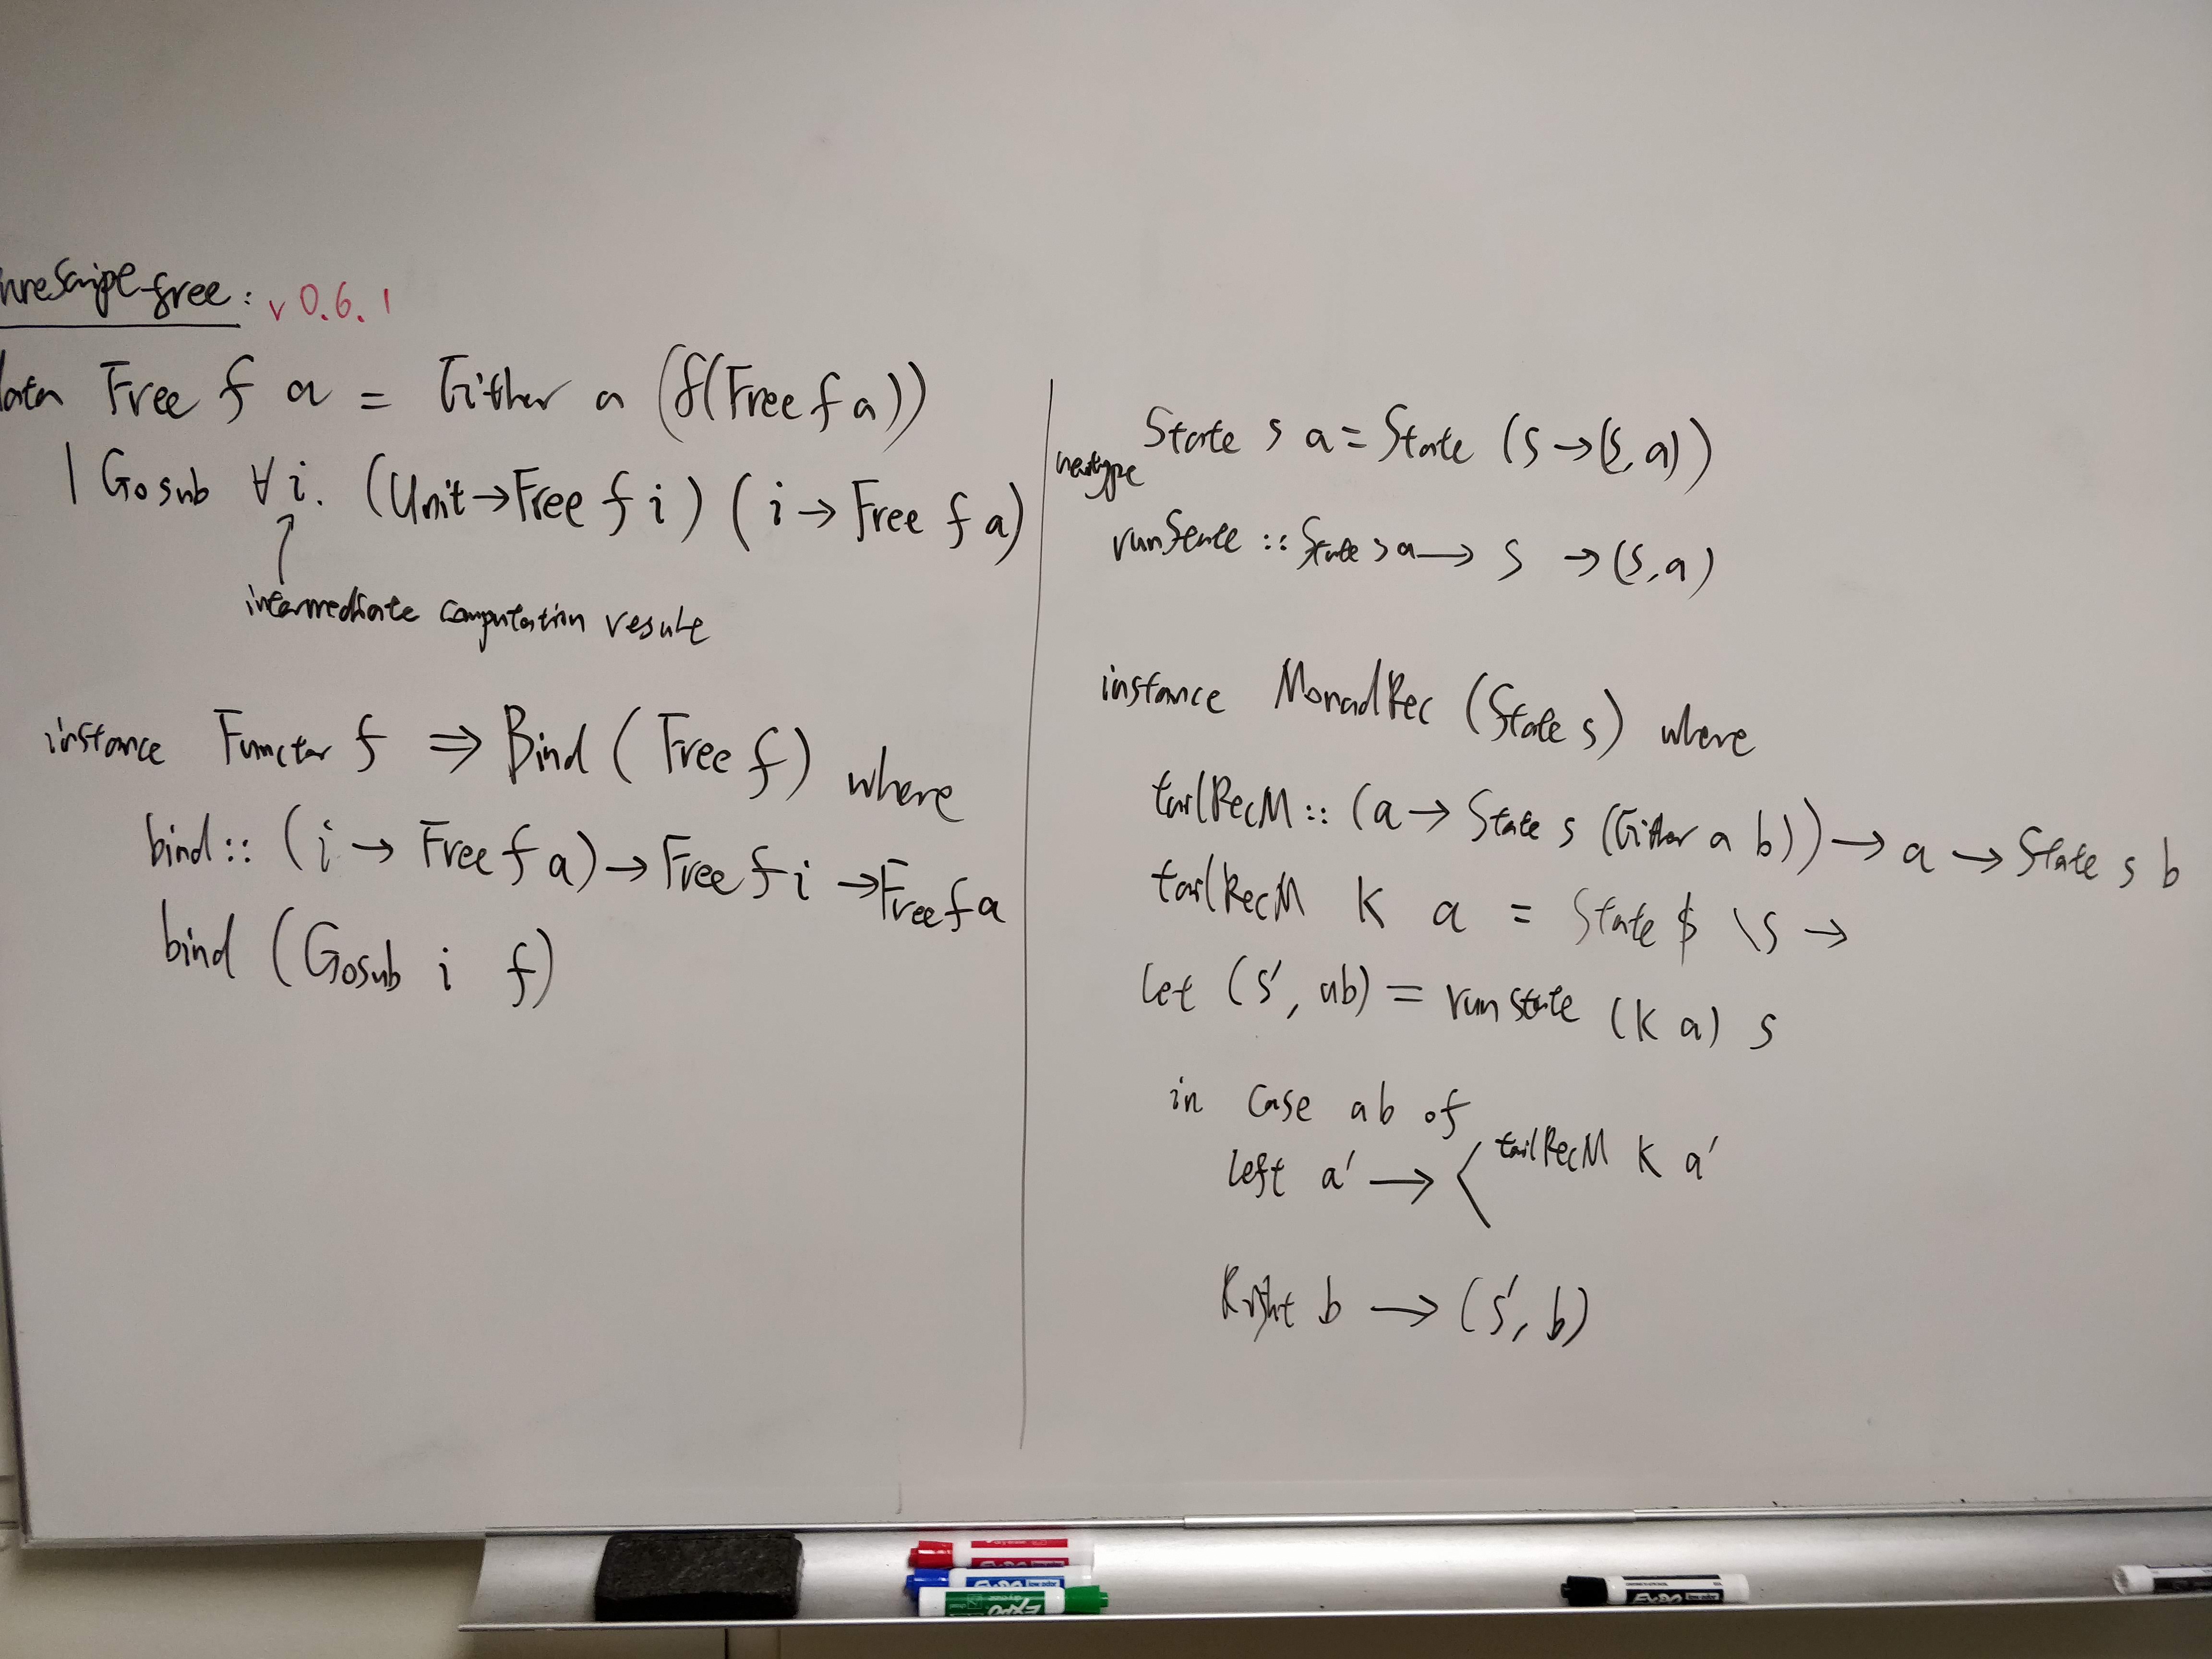 ureScript-free: v0.6.1
data Free f a = Either a (f(Free f a))
| Gosub ∀i. (Unit→Free f i) (i → Free f a)
intermediate computation result
instance Functor f ⇒ Bind (Free f) where
bind:: (i → Free f a) → Free f i → Free f a
bind (Gosub i f)
newtype State s a = State (s → (s, a))
runState :: State s a → s → (s, a)
instance MonadRec (State s) where
tailRecM:: (a → State s (Either a b)) → a → State s b
tailRecM k a = State $ \s →
let (s', ab) = runState (k a) s
in case ab of
left a' → < tailRecM k a'
Right b → (s', b)
EXPO low odor
EXPO
EXPO